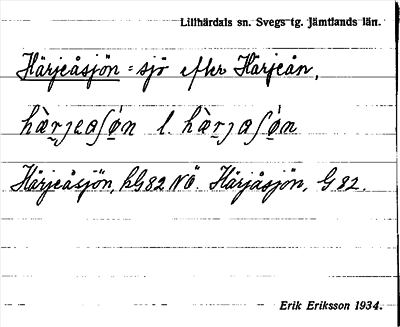 Lillhärdals sn. Svegs tg. Jämtlands län.
Härjeåsjön = sjö efter Härjeån,
hàr̯jeaʃø̀n l. hàr̯jaʃø̀n
Härjeåsjön, hG82 NÖ. Härjåsjön, G 82.
Erik Eriksson 1934.